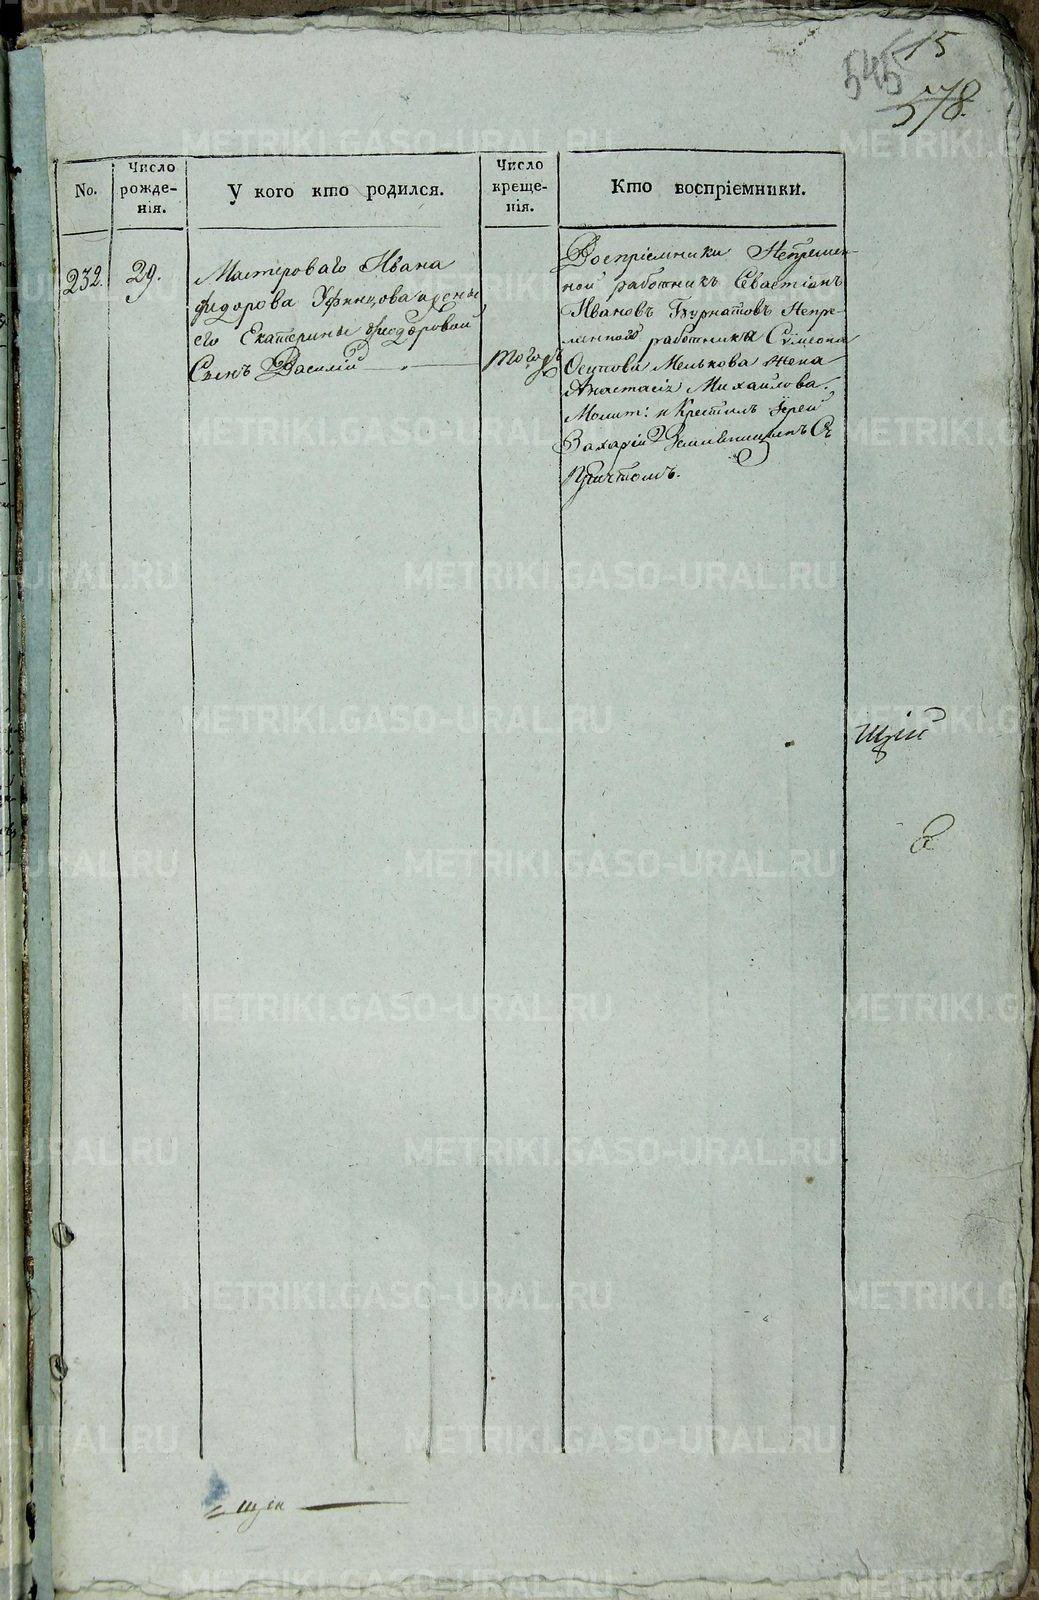 15
545
578.
No.
Число рожде-
нія.
У кого кто родился.
Число
креще-
нія.
Кто воспріемники.
232.
29.
Мастероваго Ивана
Федорова Уфинцова и жены
его Екатерины Феодоровой
Сынъ Василій
тогожъ
Воспріемники Непремен-
ной работникъ Севастіанъ
Ивановъ Бурматовъ Непре-
меннаго работника Сѵмеона
Осипова Мелькова жена
Анастасія Михайлова.
Молит: и Крестилъ Іерей
Захарій Земляницынъ Съ
Причтомъ.
щій
METRIKI.GASO-URAL.RU